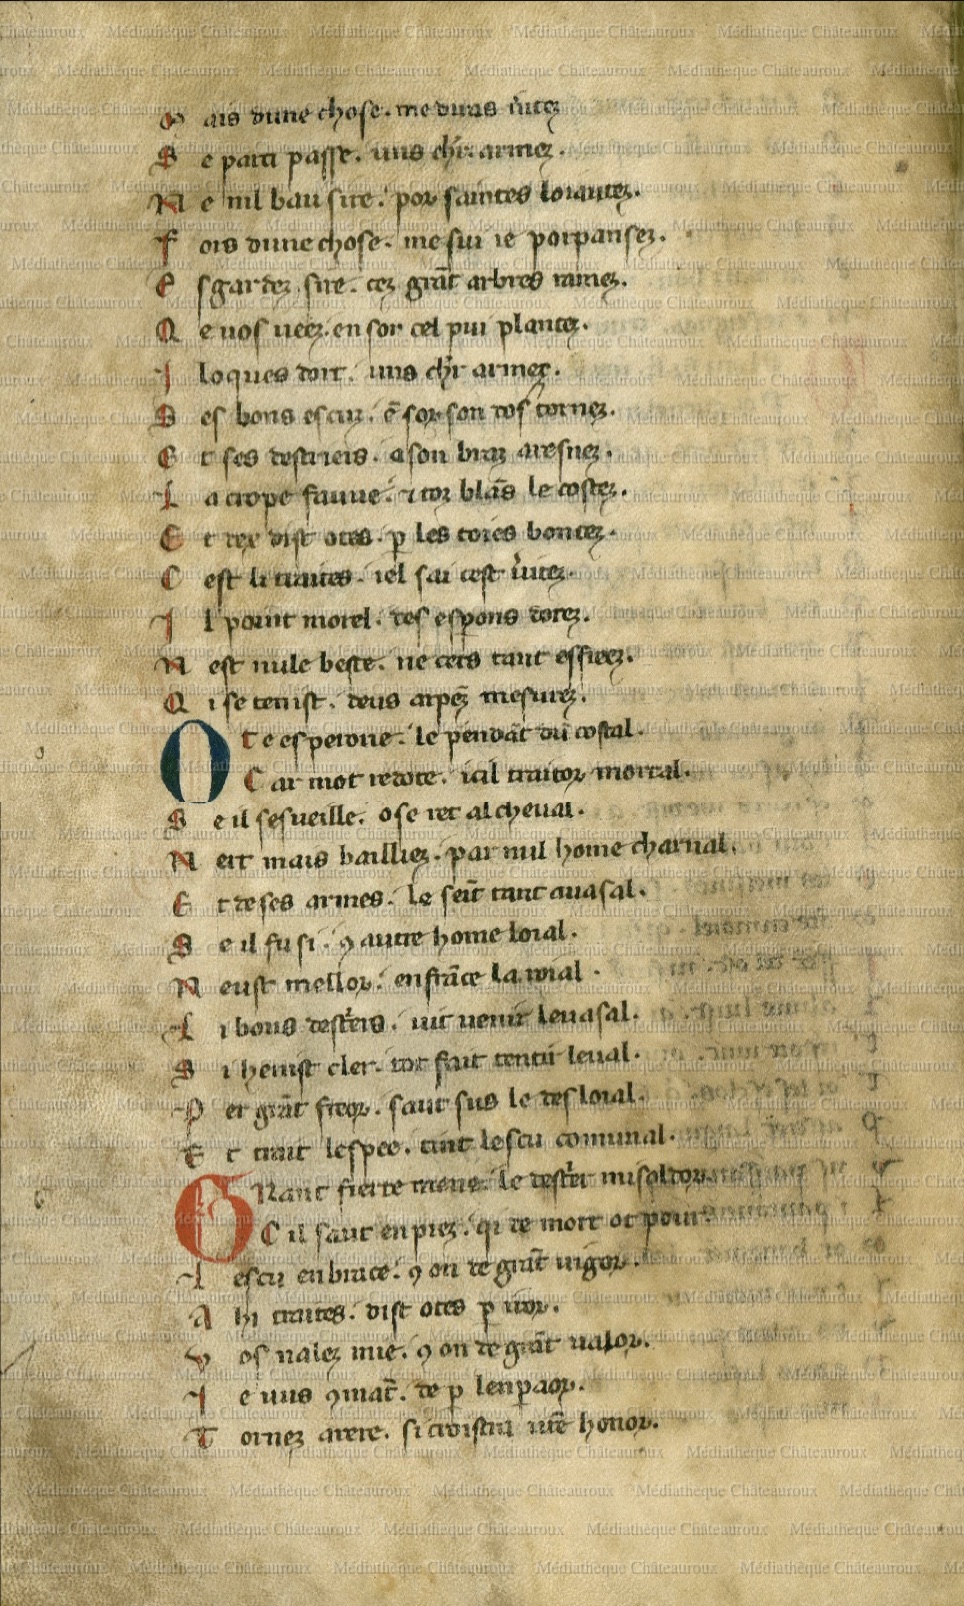 M ais dune chose. me dites ũitez
S e parti passe. uns chr̃. armez.
N e nil bau sire. por saintes loiautez.
F ors dune chose. me sui ie porpansez.
E sgardez sire. cez grãt arbres ramez.
Q e uos ueez. en sor cel pui plantez.
I loques dort. uns chr̃ armez.
S es bons escuz. ẽ sor son dos tornez.
E t ses destriers. a son braz aresnez.
L a crope fauue. ⁊ toz blãs le costez.
E t dex dist otes. ꝑ les toies bontez.
C est li traites. iel sai cest ũitez.
I l point morel. des esperons dorez.
N est nule beste. ne cers tant effreez.
Q i se tenist. deus arpẽz mesurez.
O te esperone. le pendãt dũ costal.
C ar mot redote. icil traitor mortal.
S e il sesueille. o se ret al cheual.
N ert mais bailliez. par nul home charnal.
E t de ses armes. le seit tant auasal.
S e il fu si. ꝯ autre home loial.
N eust mellor. en frãce la roial.
L i bons destr̃ers. uit uenir leuasal.
S i henist cler. tot fait tentir leual.
P er grãt freor. saut sus le desloial.
E t trait lespee. tint lescu comunal.
G Rant fierte mene. le destr̃er misoldor.
C il saut en piez. qi de mort ot poor.
L escu enbrace. ꝯ on de grãt uigor.
A hi traites. dist otes ꝑ iror.
V os nalez mie. ꝯ on de grãt ualor.
I e uus ꝯmãt. de ꝑ lenpaor.
T ornez arere. si croistra ur̃e honor.